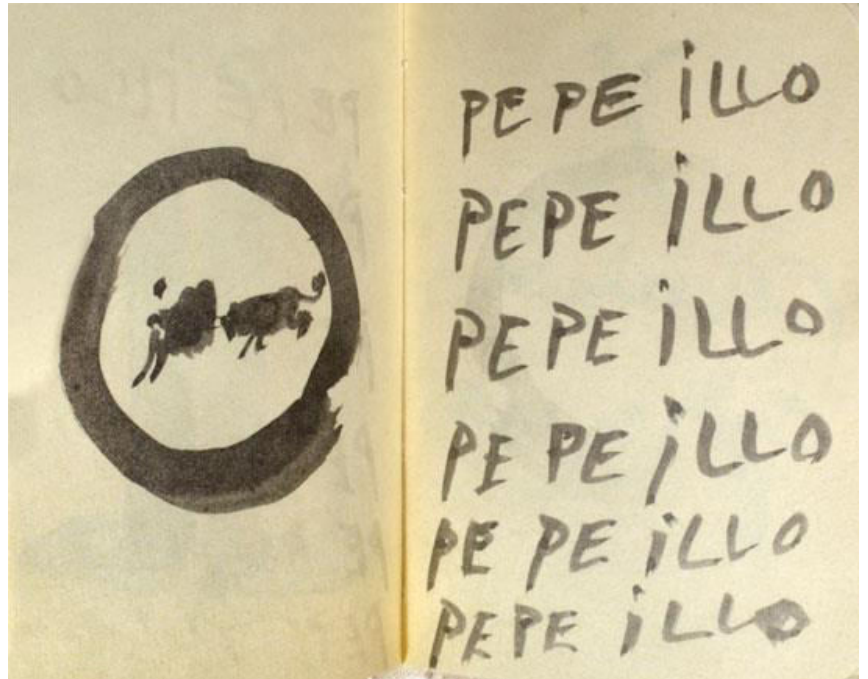 PEPE iLLO
PEPE iLLO
PEPE iLLO
PEPE iLLO
PEPE iLLO
PEPE iLLO